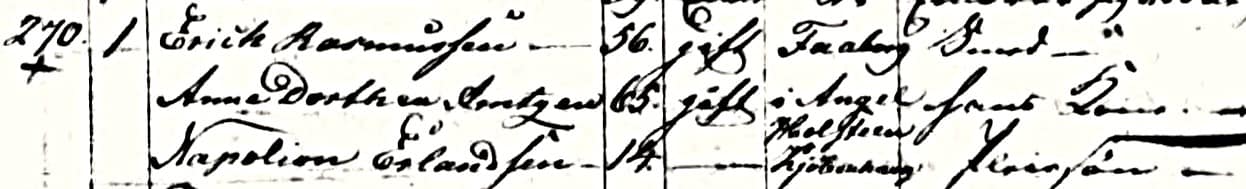 270. 1 Erich Rasmussen — 56. gift Faaborg Smed —
+ Anne Dorthea Arntzen 65. gift i Angel hans Kone. —
Holsteen
Napolion Erlandsen - 14. — Kjöbenhavn Pleiesøn —